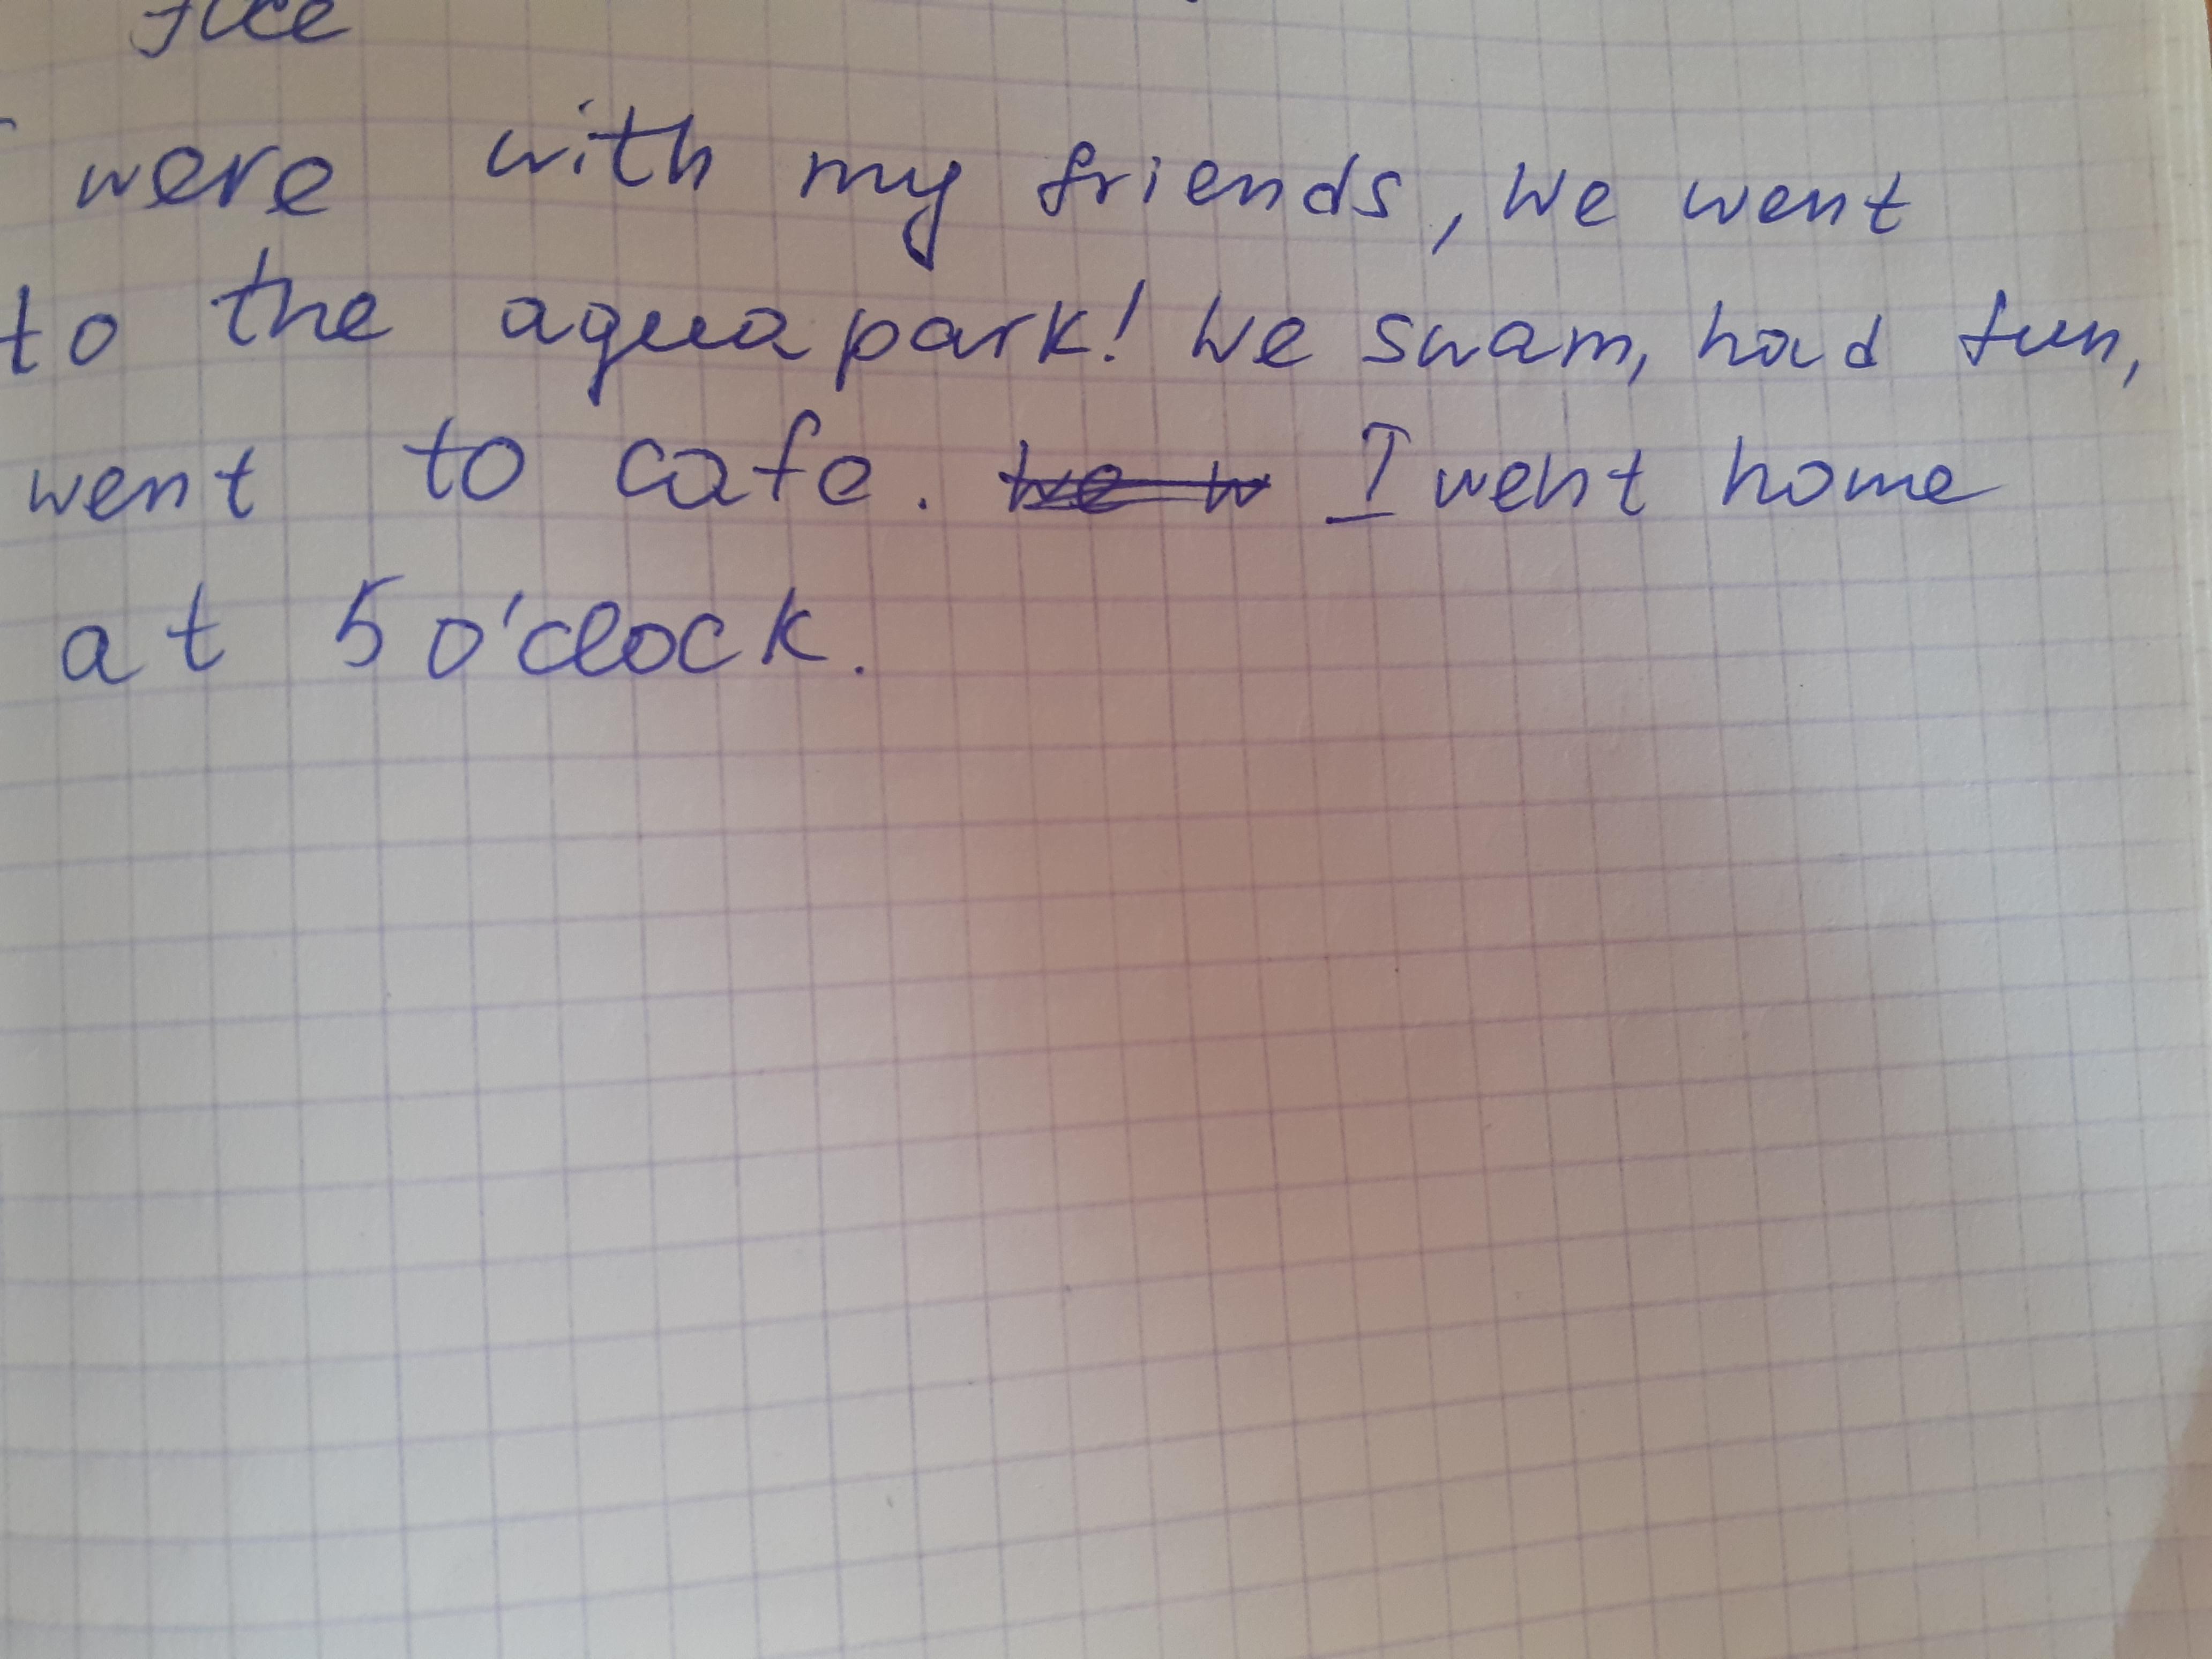 were with my friends, We went
to the aquapark! We swam, had fun,
went to cafe. I went home
at 5 o'clock.